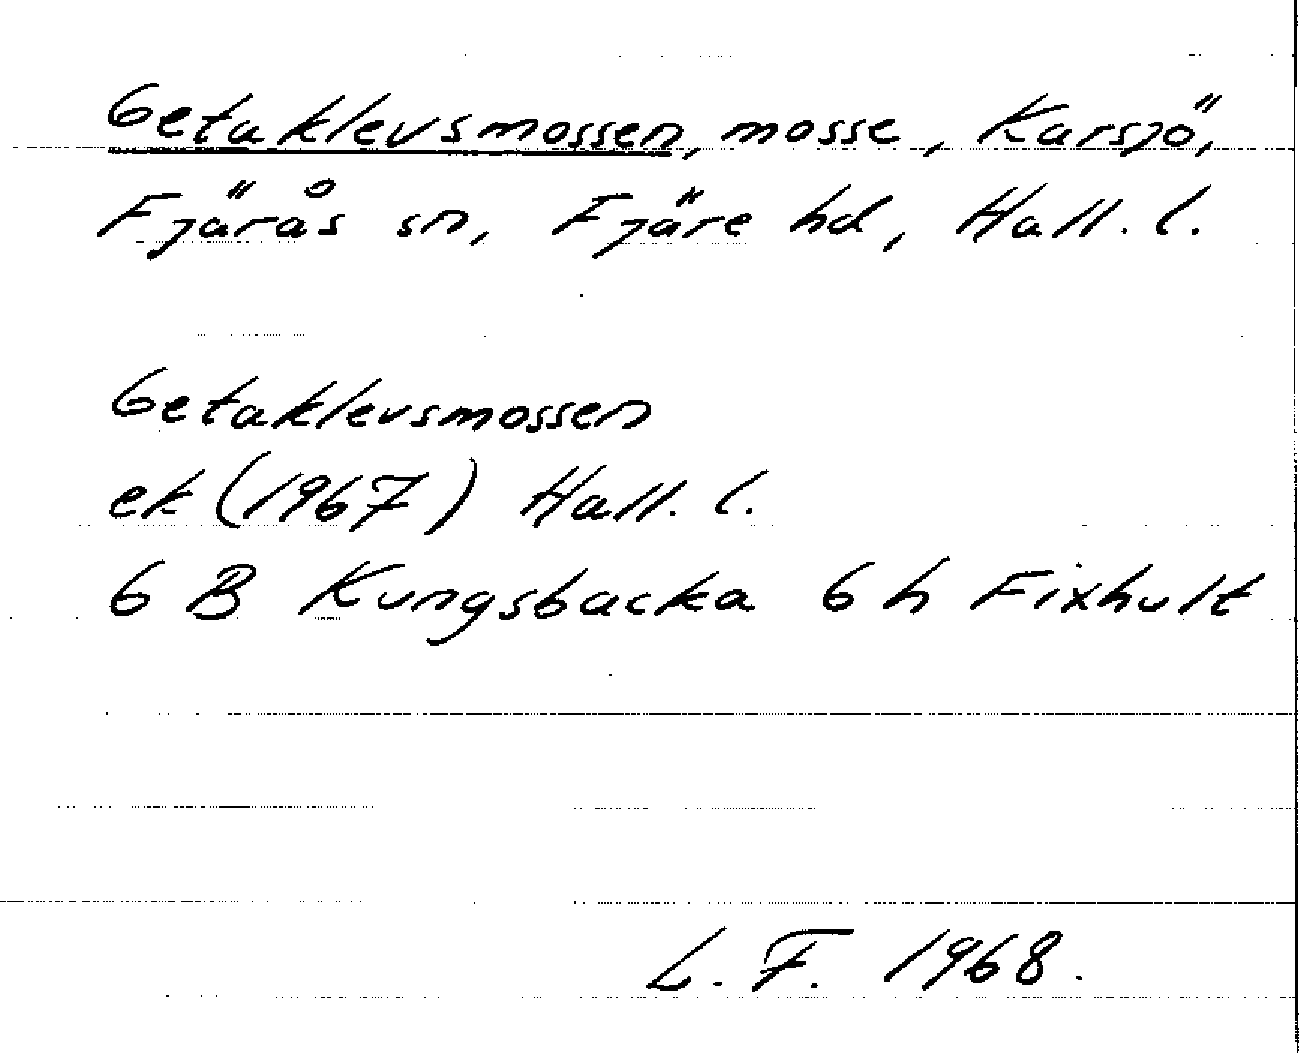 Getaklevsmossen, mosse, Karsjö,
Fjärås sn, Fjäre hd, Hall. l.
Getaklevsmossen
ek (1967) Hall. l.
6 B Kungsbacka 6 h Fixhult
L. F. 1968.